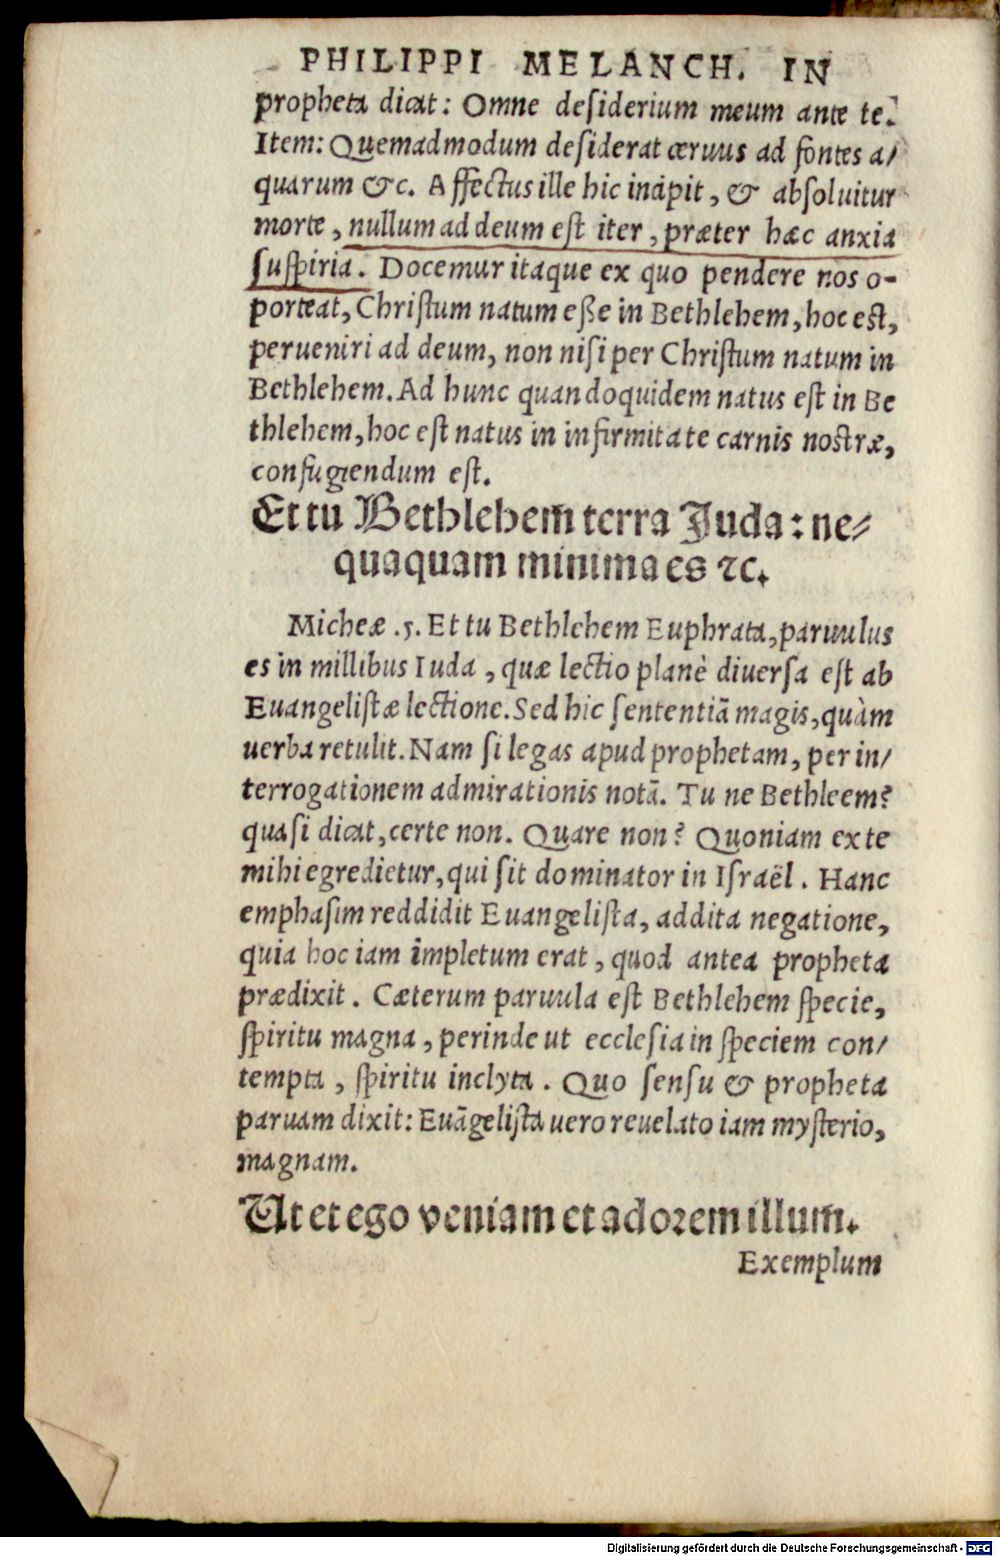 PHILIPPI MELANCH. IN
propheta dicat: Omne deſiderium meum ante te.
Item: Quemadmodum deſiderat ceruus ad fontes a/
quarum &c. Affectus ille hic incipit, & abſoluitur
morte, nullum ad deum eſt iter, præter hæc anxia
ſuſpiria. Docemur itaque ex quo pendere nos o-
porteat, Chriſtum natum eße in Bethlehem, hoc eſt,
perueniri ad deum, non niſi per Chriſtum natum in
Bethlehem. Ad hunc quandoquidem natus eſt in Be
thlehem, hoc eſt natus in infirmitate carnis noſtræ,
confugiendum eſt.
Et tu Bethlehem̃ terra Juda: ne⸗
quaquam minima es ⁊c.
Micheæ .5. Et tu Bethlehem Euphrata, paruulus
es in millibus Iuda, quæ lectio planè diuerſa eſt ab
Euangeliſtæ lectione. Sed hic ſententiã magis, quàm
uerba retulit. Nam ſi legas apud prophetam, per in/
terrogationem admirationis notã. Tu ne Bethleem?
quaſi dicat, certe non. Quare non? Quoniam ex te
mihi egredietur, qui ſit dominator in Iſraël. Hanc
emphaſim reddidit Euangeliſta, addita negatione,
quia hoc iam impletum erat, quod antea propheta
prædixit. Cæterum paruula eſt Bethlehem ſpecie,
ſpiritu magna, perinde ut eccleſia in ſpeciem con/
tempta, ſpiritu inclyta. Quo ſenſu & propheta
paruam dixit: Euãgeliſta uero reuelato iam myſterio,
magnam.
Ut et ego veniam et adorem illum̃.
Exemplum
Digitalisierung gefördert durch die Deutsche Forschungsgemeinschaft - DFG